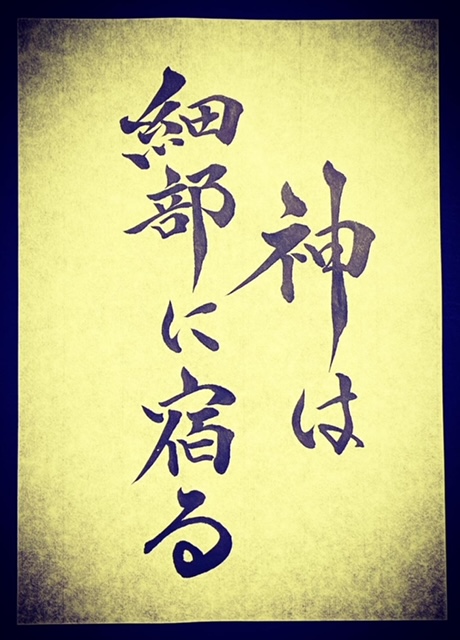 神は
細部に宿る